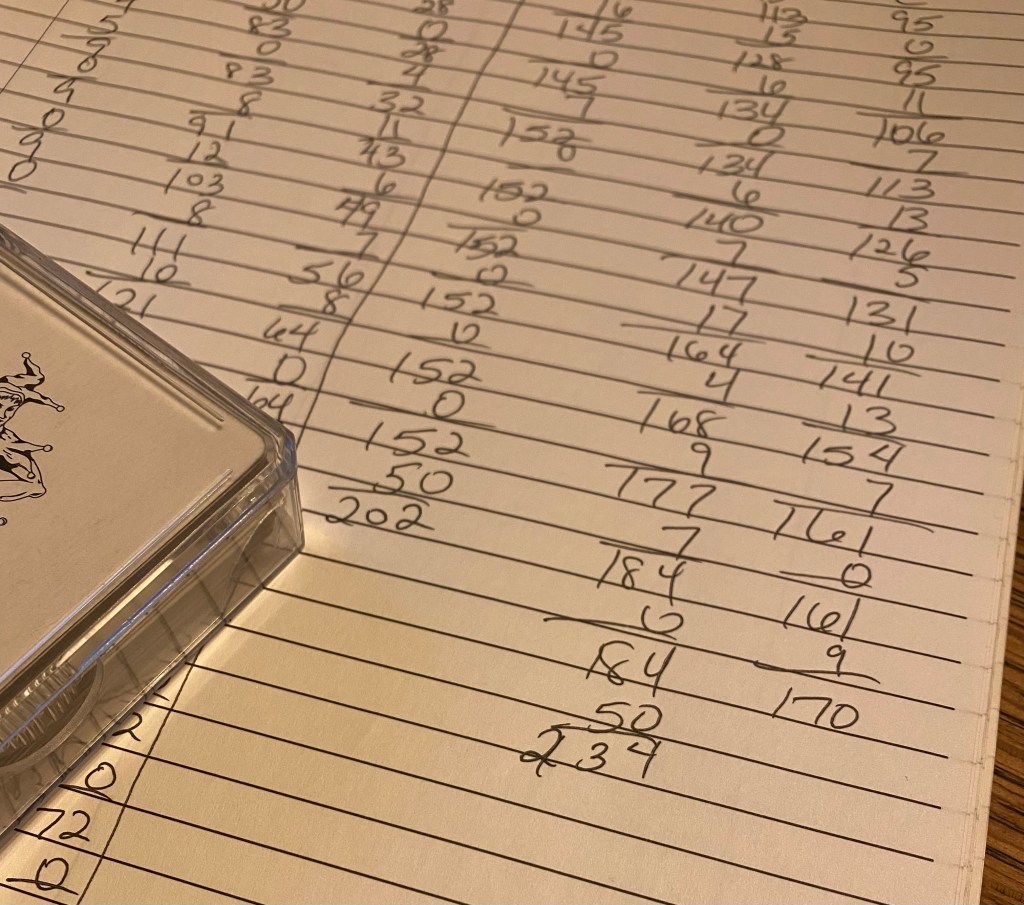 5
9
0
9
0
9
0
83
0
83
8
91
12
103
8
111
10
121
28
0
28
4
32
11
43
6
49
7
56
8
64
0
64
6
145
0
145
7
152
0
152
0
152
0
152
0
152
0
152
50
202
113
15
128
6
134
0
134
6
140
7
147
17
164
4
168
9
177
7
184
0
184
50
234
95
0
95
11
106
7
113
13
126
5
131
10
141
13
154
7
161
0
161
9
170
2
0
72
0